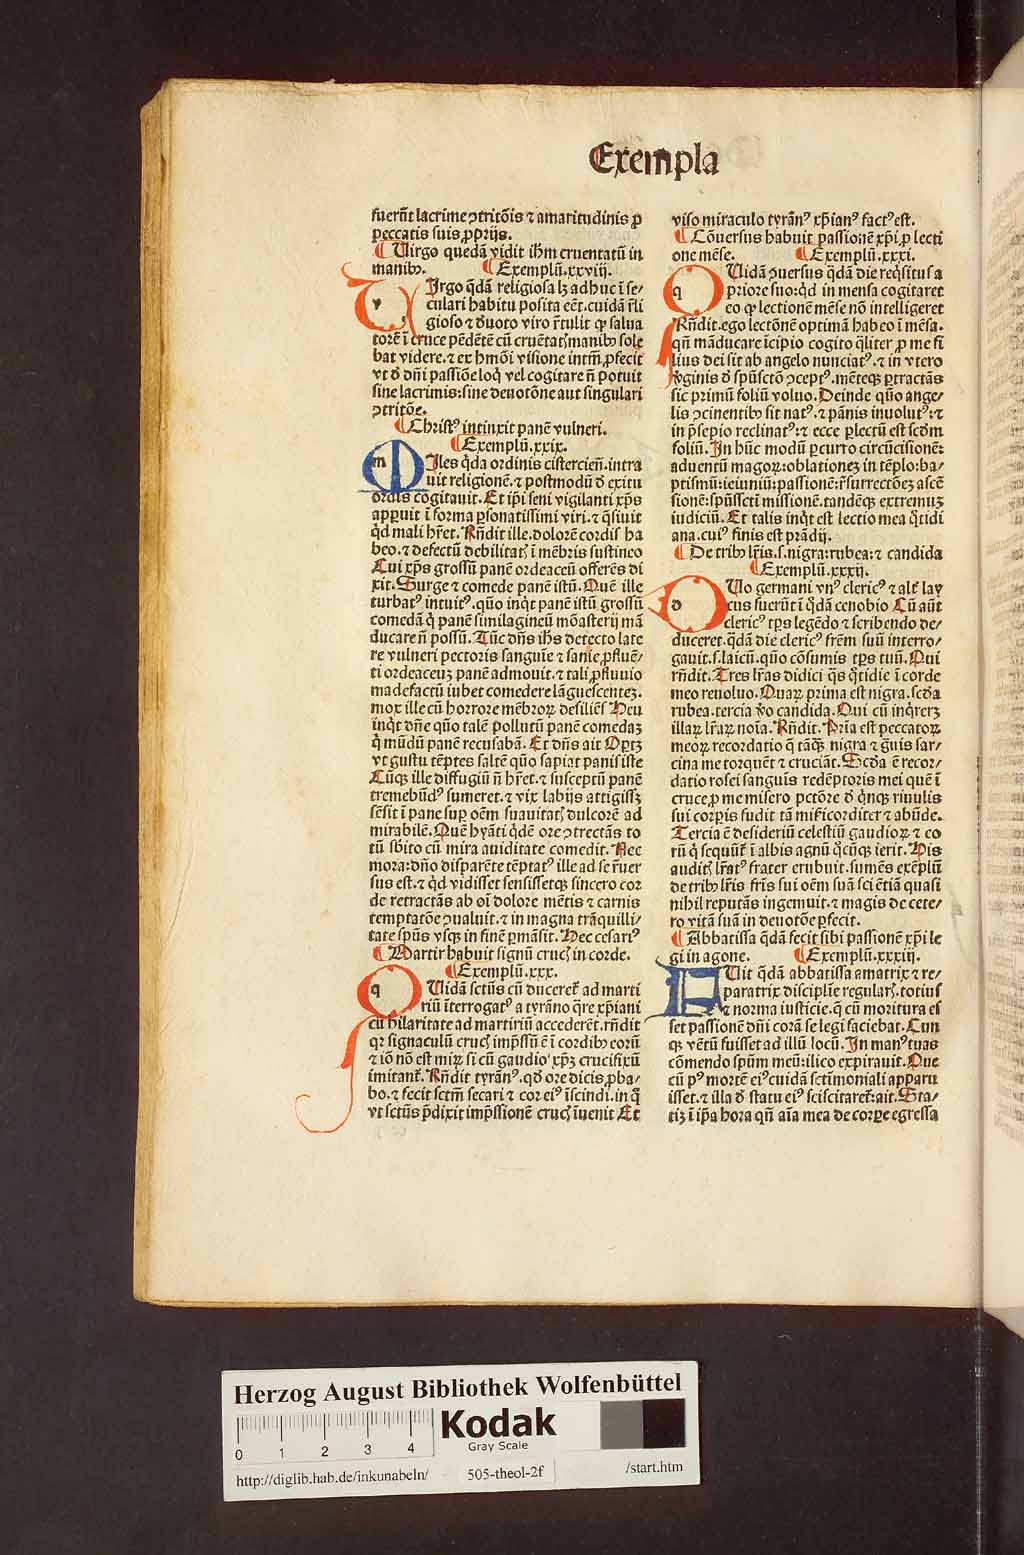 Exempla
fuerūt lacrime ↄtritōis ⁊ amaritudinis ꝓ
peccatis suis ꝓprijs.
¶ Uirgo quedā vidit ihm cruentatū in
manibꝰ. ¶ Exemplū.xxviij.
v Irgo qdā religiosa lꝫ adhuc ī se⸗
culari habitu posita eēt.cuidā rƚi
gioso ⁊ deuoto viro rētulit ꝙ salua
torē ī cruce pēdētē cū cruētatꝭ manibꝰ sole
bat videre.⁊ ex hmōi visione intm̄ ꝓfecit
vt de dn̄i passiōe loq̄ vel cogitare n̄ potuit
sine lacrimis:sine deuotōne aut singulari
ↄtritōe.
¶ Christꝰ intinxit panē vulneri.
¶ Exemplū.xxix.
m Iles qdā ordinis cisterciēn.intra
uit religionē.⁊ postmodū de exitu
ordīs cōgitauit. Et ip̄i seni vigilanti xp̄s
apparuit ī forma ꝑsonatissimi viri.⁊ q̄siuit
qd mali hr̄et. Rn̄dit ille.dolorē cordis ha
beo.⁊ defectū debilitatꝭ ī mēbris sustineo
Cui xp̄s grossū panē ordeaceū offerēs di
xit. Surge ⁊ comede panē istū. Quē ille
turbatꝰ intuitꝰ.quō inqt panē istū grossū
comedā q panē similagineū monasterij mā
ducare n̄ possū. Tūc dn̄s ihs detecto late
re vulneri pectoris sanguīe ⁊ sanie ꝓfluē⸗
ti ordeaceuꝫ panē admouit.⁊ tali ꝓfluuio
madefactū iubet comedere lāguescenteꝫ.
mox ille cū horrore mēbroꝝ desiliēs Heu
inqt dn̄e quō talē pollutū panē comedaꝫ
q mūdū panē recusabā. Et dn̄s ait Oꝑtꝫ
vt gustu tēptes saltē quō sapiat panis iste
Cūqꝫ ille diffugiū n̄ hr̄et.⁊ susceptū panē
tremebūdꝰ sumeret.⁊ vix labijs attigissꝫ
sēsit ī pane suꝑ oēm suauitatꝭ dulcorē ad
mirabilē. Quē hyāti qdē ore ↄtrectās to
tū sbito cū mira auiditate comedit. Nec
mora:dn̄o disparēte tēptatꝰ ille ad se reuer
sus est.⁊ qd vidisset sensissetqꝫ sincero cor
de retractās ab oī dolore mētis ⁊ carnis
temptatōe ↄualuit.⁊ in magna trāquilli⸗
tate spūs vsqꝫ in finē ꝑmāsit. Hec cesariꝰ
¶ Martir habuit signū crucꝭ in corde.
¶ Exemplū.xxx.
q Uidā sctūs cū duceret̄ ad marti
riū īterrogatꝰ a tyrāno q̄re xp̄iani
cū hilaritate ad martiriū accederēt.rn̄dit
qꝛ signaculū crucꝭ imp̄ssū ē ī cordibꝰ eorū
⁊ iō nō est miꝝ si cū gaudio xp̄ꝫ crucifixū
imitant̄. Rn̄dit tyrānꝰ.qd ore dicis ꝓba⸗
bo.⁊ fecit sctm̄ secari ⁊ cor eiꝰ īscindi.in q
vt sctūs p̄dixit imp̄ssionē crucꝭ īuenit Et
viso miraculo tyrānꝰ xp̄ianꝰ factꝰ est.
¶ Cōuersus habuit passionē xp̄i ꝓ lecti
one mēse. ¶ Exemplū.xxxi.
q Uidā ↄuersus qdā die reqsitus a
priore suo:qd in mensa cogitaret
eo ꝙ lectionē mēse nō intelligeret
Rn̄dit.ego lectōnē optimā habeo ī mēsa.
qn̄ māducare īcipio cogito qliter ꝓ me fi
lius dei sit ab angelo nunciatꝰ.⁊ in vtero
v̄ginis de spū sctō ↄceptꝰ.mēteqꝫ ꝑtractās
sic primū foliū voluo. Deinde quō ange⸗
lis ↄcinentibꝰ sit natꝰ.⁊ pānis inuolutꝰ:⁊
in p̄sepio reclinatꝰ:⁊ ecce ꝑlectū est scdm̄
foliū. In hūc modū ꝑcurro circūcisionē:
aduentū magoꝝ:oblationeꝫ in tēplo:ba⸗
ptismū:ieiuniū:passionē:resurrectōeꝫ ascē
sionē:spūssct̄i missionē.tandēqꝫ extremuꝫ
iudiciū. Et talis inqt est lectio mea qtidi
ana.cuiꝰ finis est prādij.
¶ De tribꝰ lr̄is.s.nigra:rubea:⁊ candida
¶ Exemplū.xxxij.
d Uo germani vnꝰ clericꝰ ⁊ alt̄ lay
cus fuerūt ī qdā cenobio Cū aūt
clericꝰ tp̄s legēdo ⁊ scribendo de⸗
duceret.qdā die clericꝰ frēm suū interro⸗
gauit.s.laicū.quō cōsumis tp̄s tuū. Qui
rn̄dit. Tres lr̄as didici qs qtidie ī corde
meo reuoluo. Quaꝝ prima est nigra.scda
rubea.tercia v̄o candida. Qui cū inqreret
illaꝝ lr̄aꝝ noīa. Rn̄dit. Pria est peccatoꝝ
meoꝝ recordatio q tāqꝫ nigra ⁊ guis sar⸗
cina me torquēt ⁊ cruciāt. Scda ē recor⸗
datio rosei sanguīs redēptoris mei quē ī
cruce ꝓ me misero pctōre de qnqꝫ riuulis
sui corꝑis fudit tā mīsericorditer ⁊ abūde.
Tercia ē desideriū celestiū gaudioꝝ ⁊ eo
rū q sequūt̄ ī albis agnū qcūqꝫ ierit. His
auditꝭ lr̄atꝰ frater erubuit.sumēs exēplū
de tribꝰ lr̄is frīs sui oēm suā sciētiā quasi
nihil reputās ingemuit.⁊ magis de cete⸗
ro vitā suā in deuotōe ꝑfecit.
¶ Abbatissa qdā fecit sibi passionē xp̄i le
gi in agone. ¶ Exemplū.xxxiij.
Uit qdā abbatissa amatrix ⁊ re⸗
paratrix discipline regularꝭ.totius
⁊ norma iusticie.q cū moritura es
set passionē dn̄i corā se legi faciebat. Cun
qꝫ vētū fuisset ad illū locū. In manꝰ tuas
cōmendo spūm meū:ilico expirauit. Que
cū pꝰ mortē eiꝰ cuidā sctīmoniali apparu
isset.⁊ illa de statu eiꝰ sciscitaret̄:ait. Sta⸗
tiꝫ ī ip̄a hora qn̄ aīa mea de corꝑe egressa
Herzog August Bibliothek Wolfenbüttel
0 1 2 3 4
Kodak
Gray Scale
http://diglib.hab.de/inkunabeln/ 505-theol-2f /start.htm